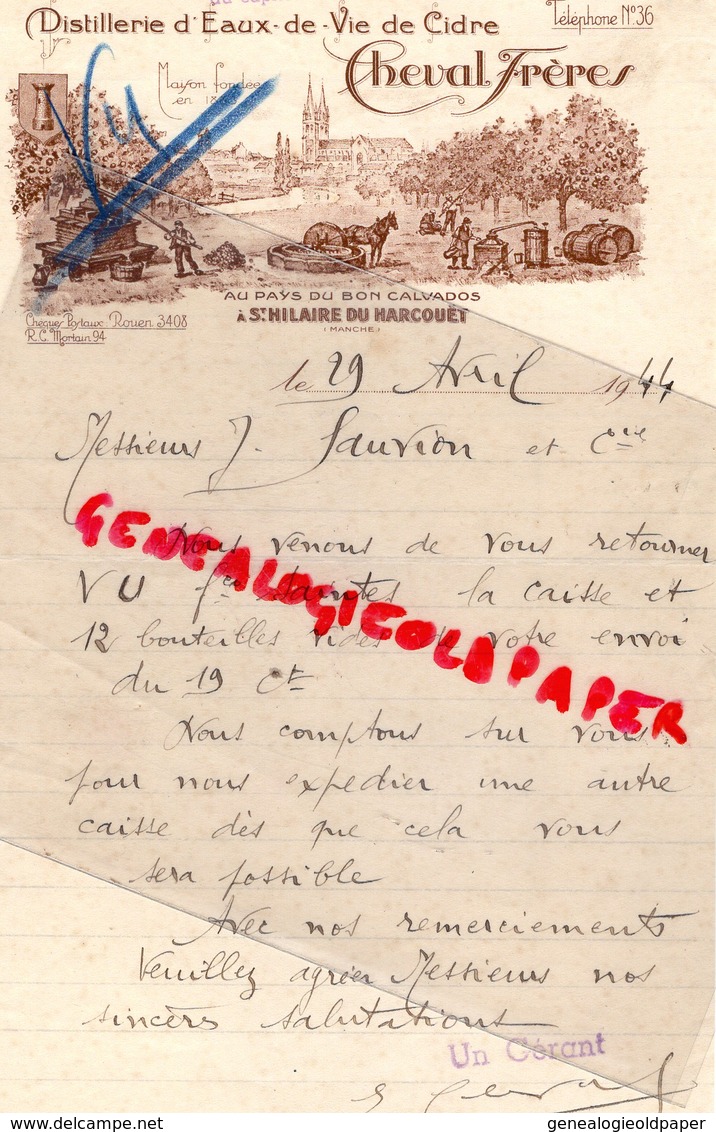 Distillerie d'Eaux-de-Vie de Cidre
Téléphone N°36
Cheval Frères
Maison fondée
en
Vu
AU PAYS DU BON CALVADOS
à St HILAIRE DU HARCOUËT
(MANCHE)
Chèques Postaux Rouen 3408
R.C. Mortain 94
le 29 Avril 1944
Messieurs J. Sauvion et Cie
Nous venons de vous retourner
VU gce Saintes la caisse et
12 bouteilles vides de votre envoi
du 19 Ct
Nous comptons sur vous
pour nous expedier une autre
caisse dès que cela vous
sera possible
Avec nos remerciements
Veuillez agréer Messieurs nos
sincères salutations
Un Gérant
GENEALOGICOLDPAPER
delcampe.net
genealogieoldpaper